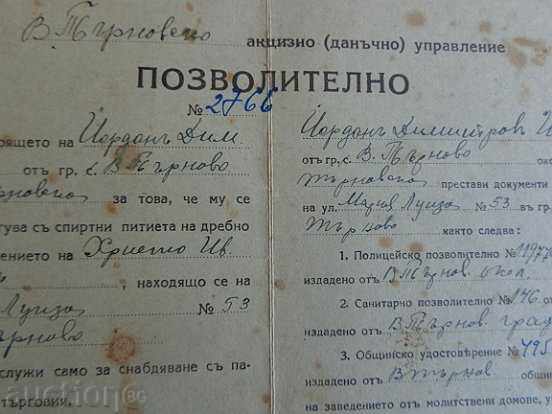 В Търновско акцизно (данъчно) управление
ПОЗВОЛИТЕЛНО
№ 2766
оящето на Йорданъ Дим.
отъ гр. с. В. Търново
рновско за това, че му се
гува съ спиртни питиета на дребно
дението на Христо Ив
, находящо се на
Луиза № 53
ърново
служи само за снабдяване съ па-
търговия.
Йорданъ Димитров
от гр. с. В. Търново око
Търновско престави документи
на ул. Мария Луиза № 53 въ гр.
Търново както следва:
1. Полицейско позволително №
издадено отъ В Търнов. окол.
2. Санитарно позволително № 146 от
издадено отъ В Търнов. град
3. Общинско удостовѣрение № 495
издадено отъ В Търнов. общин
на заведението от молитвени домове, у